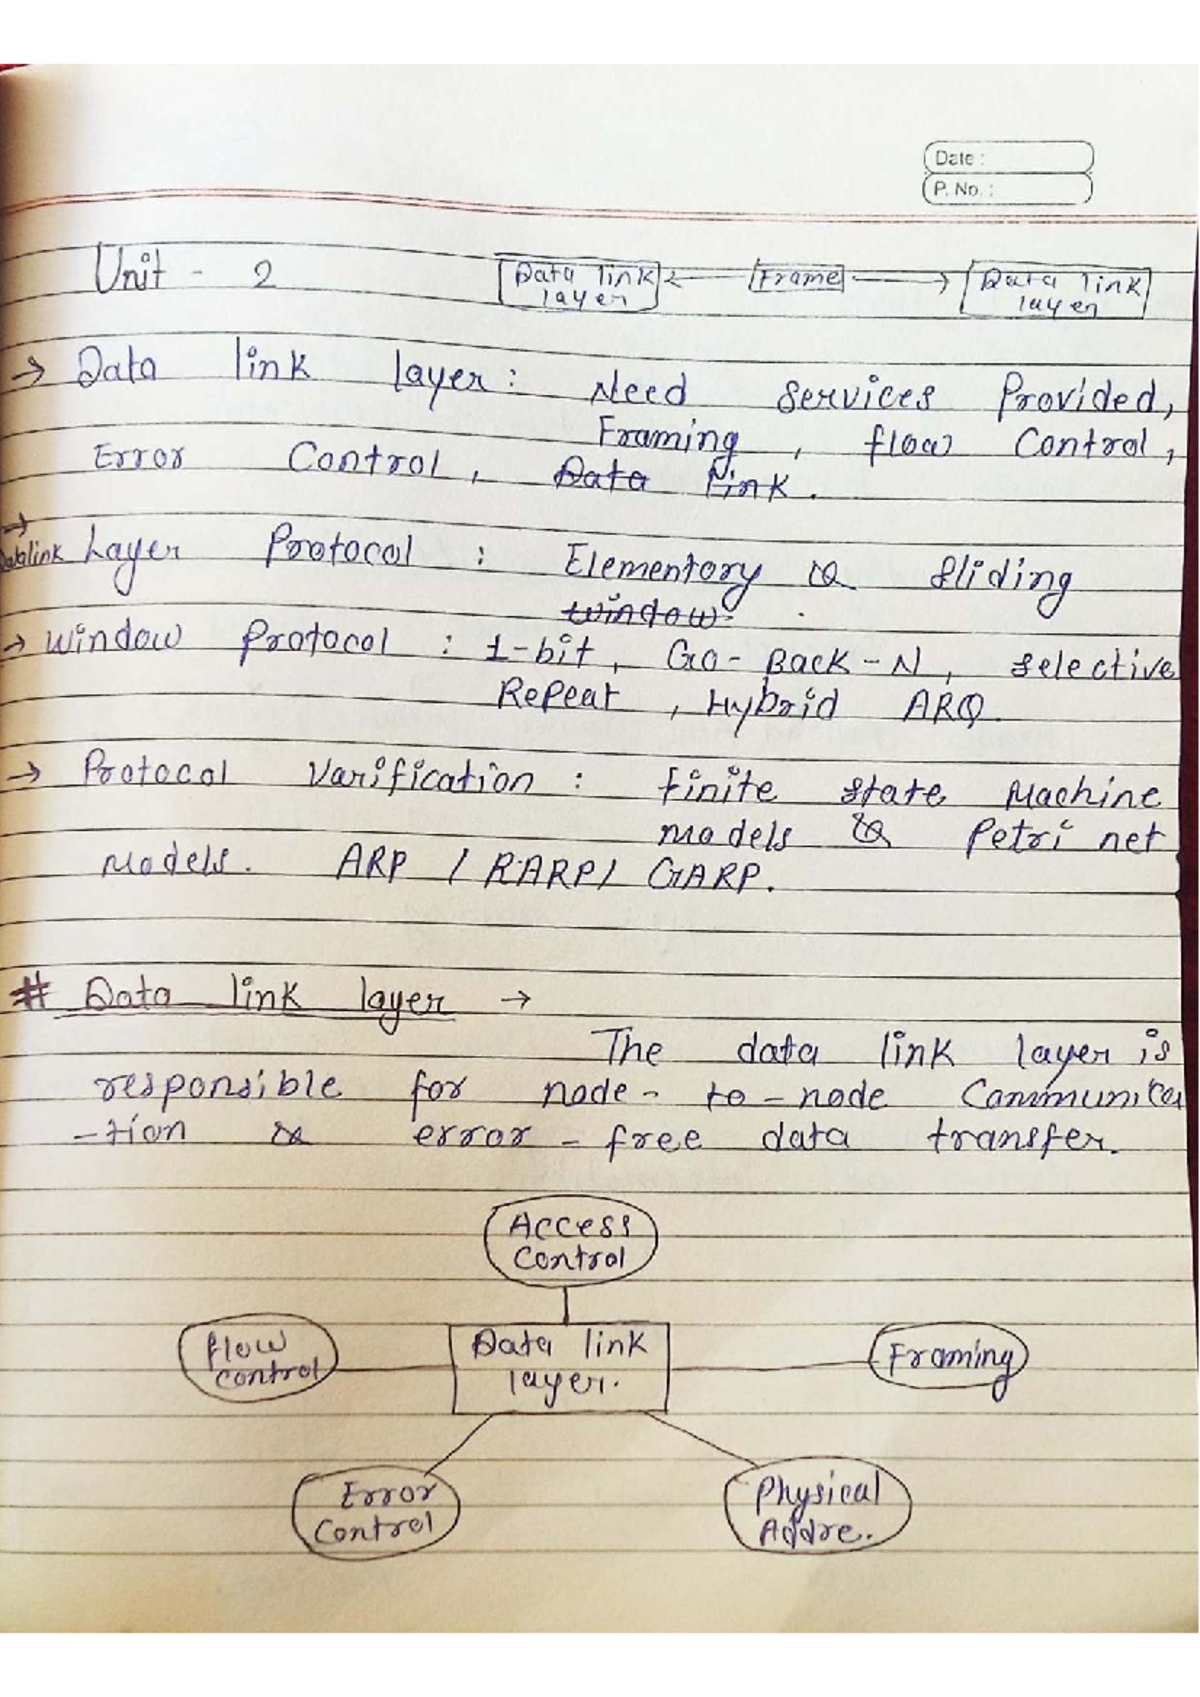 Date :
P. No. :
Unit - 2
Data link layer
Frame
Data link layer
→ Data link layer : Need Services Provided,
Framing, flow Control,
Error Control, Data link.
→
Datalink Layer Protocol : Elementory & Sliding
window.
→ Window Protocol : 1-bit, Go-Back-N, Selective
Repeat, Hybrid ARQ.
→ Protocol Varification : Finite State Machine
models & Petri net
models. ARP / RARP/ GARP.
# Data link layer →
The data link layer is
responsible for node-to-node Communica
-tion & error-free data transfer.
Access
Control
Flow
Control
Data link
layer.
Framing
Error
Control
Physical
Addre.